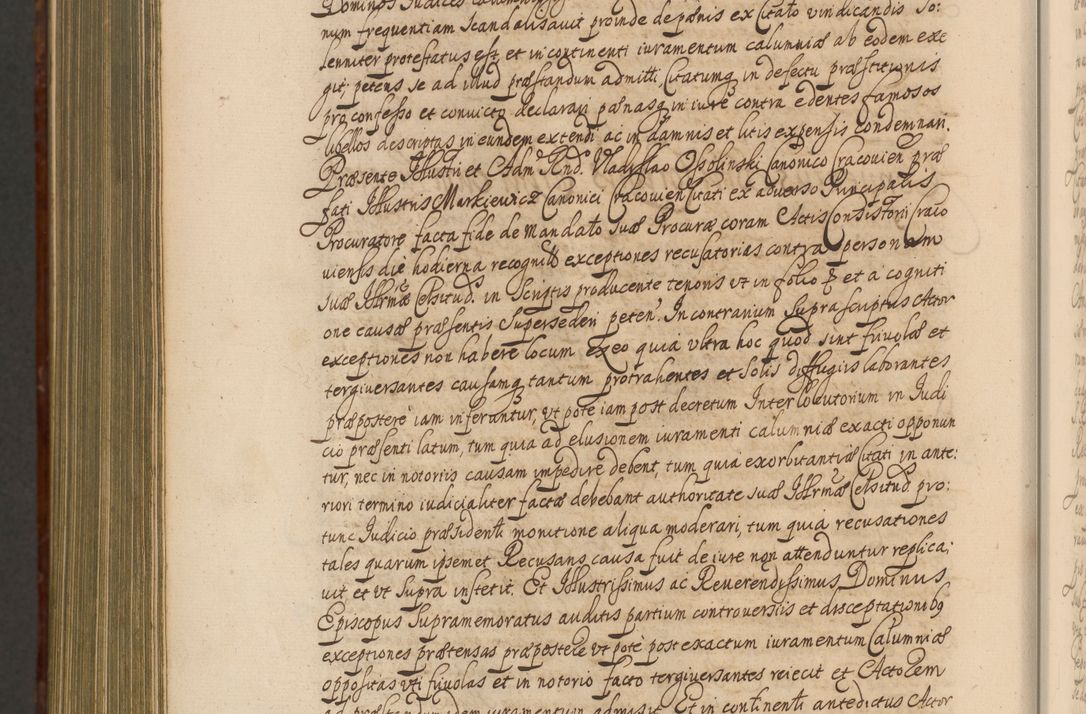 Dominos Judices
num frequentiam scandalisavit proinde de pænis ex citato vindicandis so:
lenniter protestatus est, et in continenti iuramentum calumniæ ab eodem exe
git, petens se ad illud præstandum admitti, citatumq, in defectu præstitionis
pro confesso et convicto declarari pænasq, in iure contra edentes famosos
libellos descriptas in eundem extendi ac in damnis et litis expensis condemnari.
Præsente Illustri et Adm. Rnd. Vladislao Ossolinski Canonico Cracovien præ
fati Illustris Markiewicz Canonici Cracovien Citati ex adverso Principalis
Procuratore facta fide de Mandato suæ Procuræ coram Actis Consistorii Craco
viensis die hodierna recognito exceptiones recusatorias contra personam
suæ Illrmæ Celsitud. in scriptis producente tenoris vt in folio et a cogniti
one causæ præsentis supersederi peten. In contrarium suprascriptus Actor
exceptiones non habere locum ex eo quia vltra hoc quod sint frivolæ et
tergiversantes causamq, tantum protrahentes et solis diffugiis laborantes
præpostere iam inferuntur, vt pote iam post decretum Interlocutorium in Judi
cio præsenti latum, tum quia ad elusionem iuramenti calumniæ exacti opponun
tur, nec in notoriis causam impedire debent, tum quia exorbitantiæ Citati in ante:
riori termino iudicialiter factæ debebant authoritate suæ Illrmæ Celsitud. pro:
tunc Judicio præsidenti monitione aliqua moderari, tum quia recusationes
tales quarum ipsemet Recusans causa fuit de iure non attenduntur replica;
vit et vt supra institit. Et Illustrissimus ac Reverendissimus Dominus
Episcopus supramemoratus auditis partium controversiis et disceptationibq
exceptiones prætensas præpostere vt pote post exactum iuramentum Calumniæ
oppositas vti frivolas et in notorio facto tergiversantes reiecit et Actorem
ad præstandum idem iuramentum admisit. Et in continenti antedictus Actor